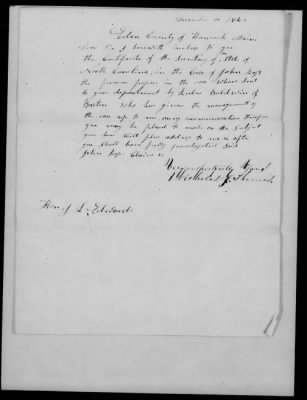 December 10 1845
Eden County of Hancock Maine
Sir I herewith inclose to you
the Certificate of the Secretary of State of
North Carolina, in the Case of John Kops
the former papers in the case where sent
to your department by Rufus Baldwin of
Boston who has given the management of
the case up to me, any communication
you may be pleased to make on the subject
you will please address to me
you shall have fully investigated said
John
Very respectfully Yours
Nicholas Thomas
Hon J L Edwards